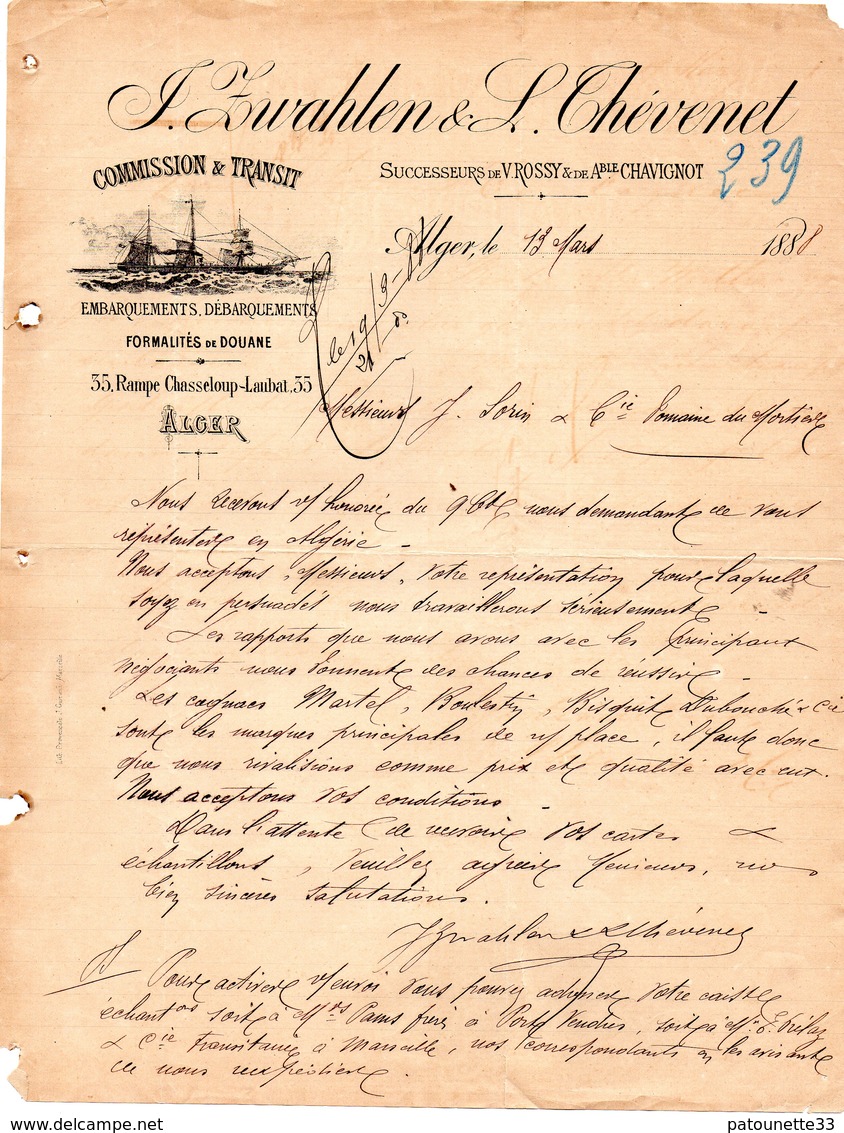 J. Zwahlen & L. Thévenet
COMMISSION & TRANSIT
SUCCESSEURS DE V. ROSSY & DE ABLE CHAVIGNOT
239
Alger, le 13 Mars 1888
EMBARQUEMENTS, DÉBARQUEMENTS
FORMALITÉS DE DOUANE
le 19/3-88
21
35, Rampe Chasseloup-Laubat, 35
ALGER
Messieurs J. Sorin & Cie Domaine du Mortier
Nous recevons v/ honorée du 9 Ct nous demandant de vous
représenter en Algérie -
Nous acceptons, Messieurs, votre représentation pour laquelle
soyez en persuadés nous travaillerons sérieusement -
Les rapports que nous avons avec les principaux
négociants nous donnent des chances de réussir -
Les cognacs Martel, Boulestin, Bisquit Dubouché & Cie
sont les marques principales de n/ place, il faut donc
que nous rivalisions comme prix et qualité avec eux.
Nous acceptons vos conditions -
Dans l'attente de recevoir vos cartes &
échantillons, veuillez agréer Messieurs, nos
bien sincères salutations.
J Zwahlen & L Thévenet
Pour activer l'envoi vous pouvez adresser votre caisse
échantons soit à Mrs Pams frères à Port Vendres, soit à Mr
& Cie transitaire à Marseille, nos correspondants en les avisant
de nous réexpédier.
patounette33